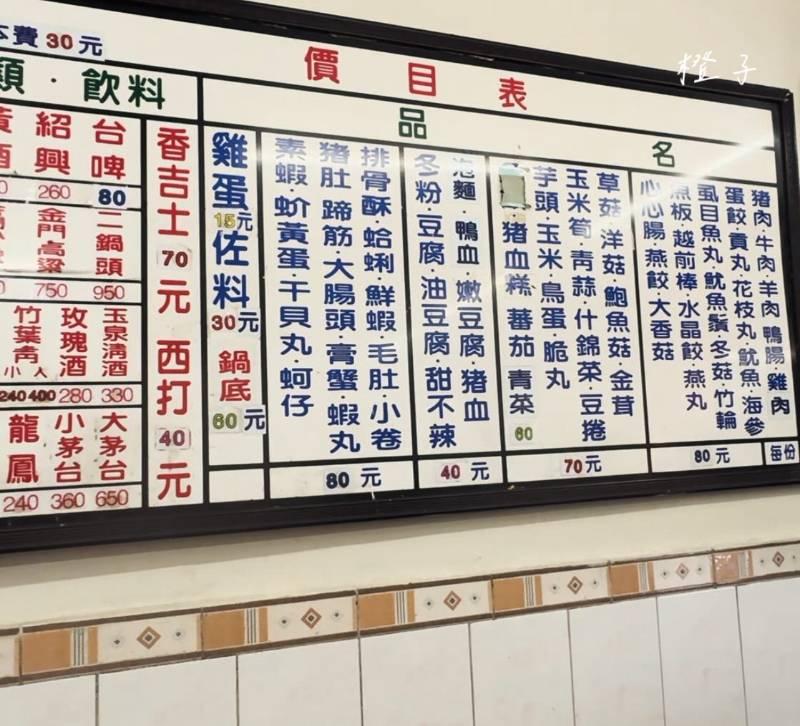 橙子
價目表
品名
每份
豬肉·牛肉·羊肉·鴨腸·雞肉
蛋餃·貢丸·花枝丸·魷魚·海參
虱目魚丸·魷魚鬚·冬菇·竹輪
魚板·越前棒·水晶餃·燕丸
心心腸·燕餃·大香菇
80元
草菇·洋菇·鮑魚菇·金茸
玉米筍·青蒜·什錦菜·豆捲
芋頭·玉米·鳥蛋·脆丸
豬血糕·蕃茄·青菜60
70元
泡麵·鴨血·嫩豆腐·豬血
冬粉·豆腐·油豆腐·甜不辣
40元
排骨酥·蛤蜊·鮮蝦·毛肚·小卷
豬肚·蹄筋·大腸頭·膏蟹·蝦丸
素蝦·魪黃蛋·干貝丸·蚵仔
80元
雞蛋15元佐料30元
鍋底60元
本費30元
類·飲料
香吉士70元 西打40元
台啤
80
紹興
260
酒
二鍋頭
950
金門高粱
750
玉泉清酒
330
玫瑰酒
280
竹葉青
小 大
240 400
大茅台
650
小茅台
360
龍鳳
240